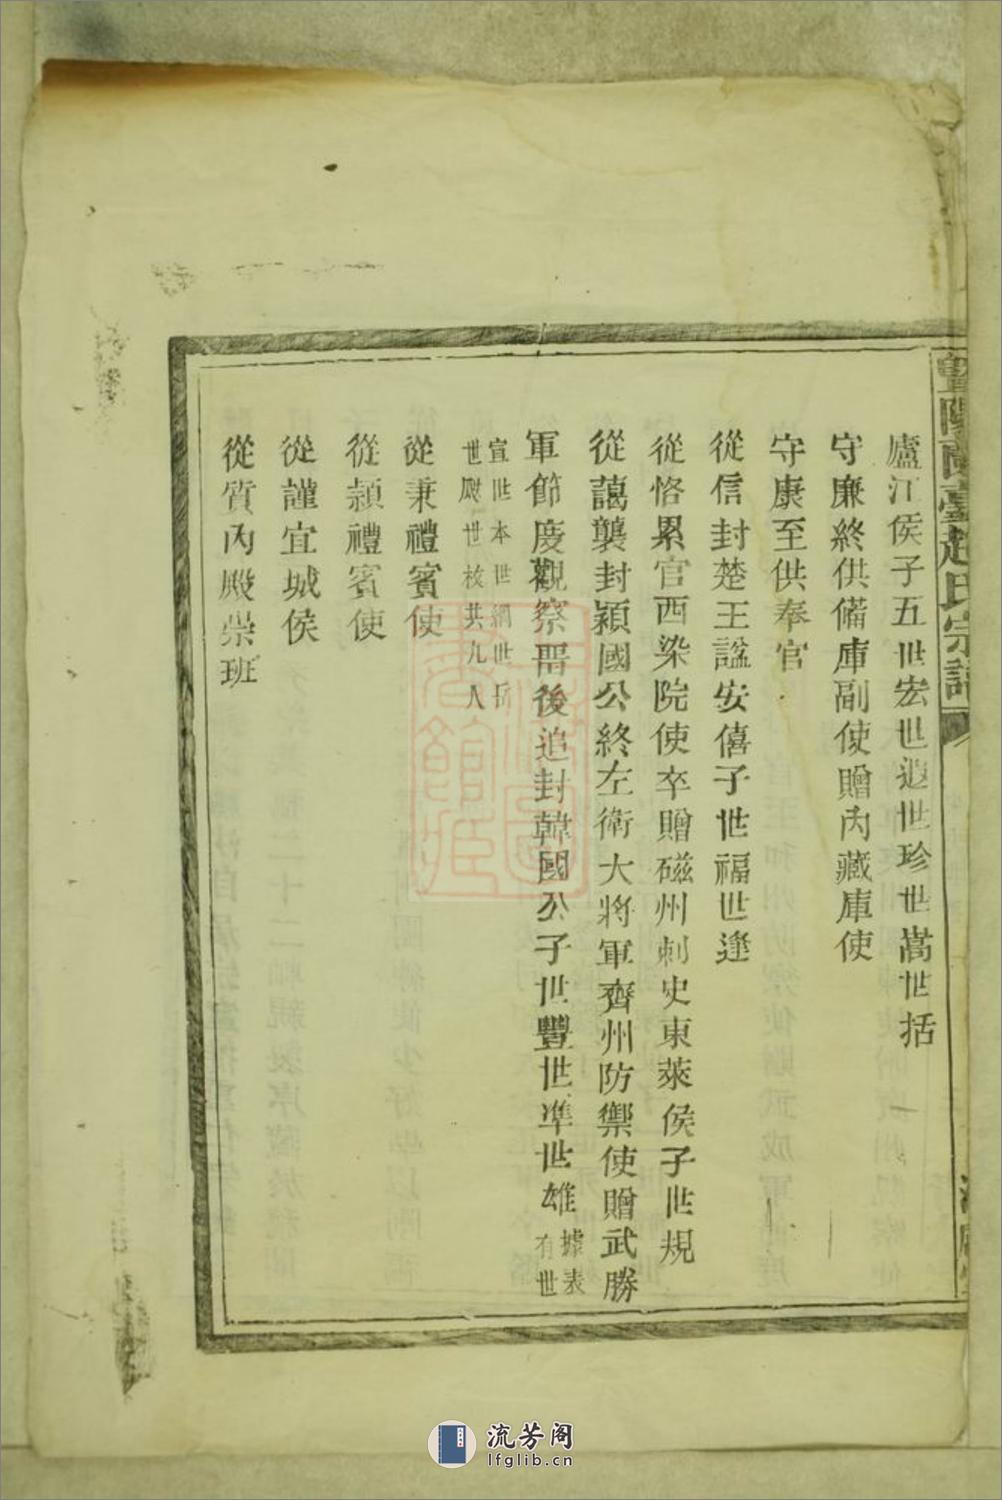 暨陽蘭臺趙氏宗譜
廬江侯子五世宏世遐世珍世嵩世括
守廉終供備庫副使贈內藏庫使
守康至供奉官
從信封楚王謚安僖子世福世逢
從恪累官西染院使卒贈磁州刺史東萊侯子世規
從藹襲封潁國公終左衛大將軍齊州防禦使贈武勝
軍節度觀察畱後追封韓國公子世豐世準世雄據表
有世
宣世本世綱世岳
世勵世核共九人
從秉禮賓使
從頴禮賓使
從謹宜城侯
從質內殿崇班
流芳阁
lfglib.cn